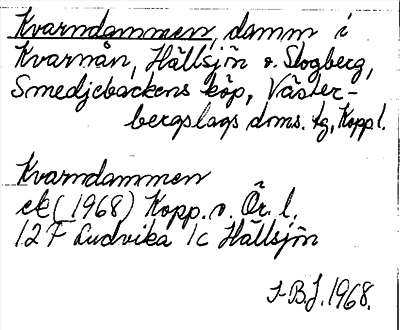 Kvarndammen, damm i
Kvarnån, Hällsjön o. Skogberg,
Smedjebackens köp, Väster-
bergslags doms. tg, Kopp. l.
Kvarndammen
ek (1968) Kopp. o. Ör. l.
12F Ludvika 1c Hällsjön
I-B.J. 1968.